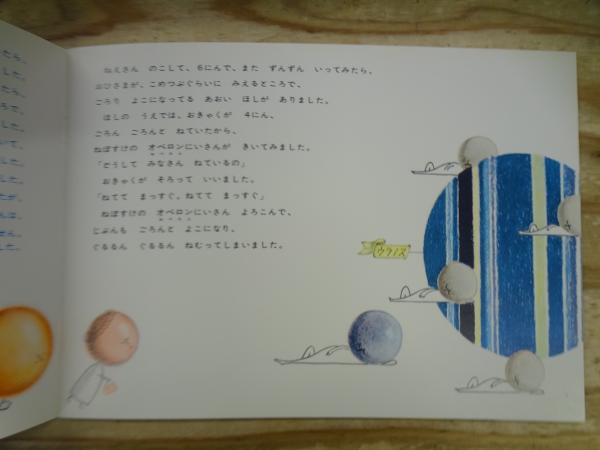 ねえさん のこして、6にんで、また ずんずん いってみたら、
おひさまが、こめつぶぐらいに みえるところで、
ごろり よこになってる あおい ほしが ありました。
ほしの うえでは、おきゃくが 4にん、
ごろん ごろんと ねていたから、
ねぼすけの オベロンにいさんが きいてみました。
「どうして みなさん ねているの」
おきゃくが そろって いいました。
「ねてて まっすぐ、ねてて まっすぐ」
ねぼすけの オベロンにいさん よろこんで、
じぶんも ごろんと よこになり、
ぐるるん ぐるるん ねむってしまいました。
ウラノス